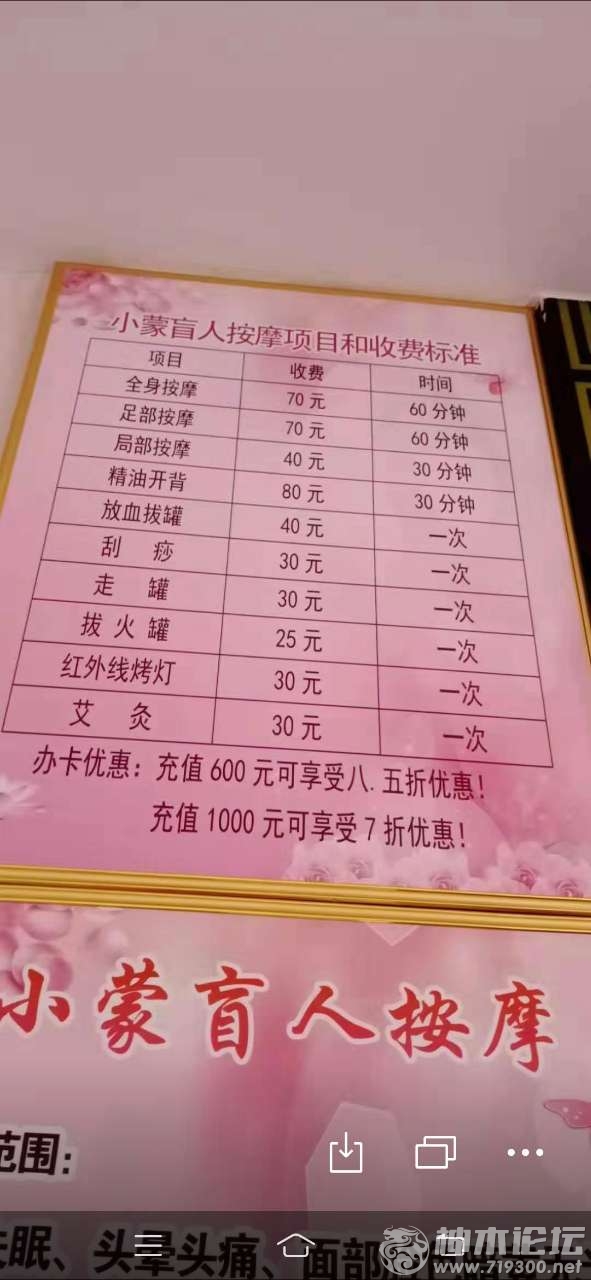 小蒙盲人按摩项目和收费标准
项目 收费 时间
全身按摩 70元 60分钟
足部按摩 70元 60分钟
局部按摩 40元 30分钟
精油开背 80元 30分钟
放血拔罐 40元 一次
刮 痧 30元 一次
走 罐 30元 一次
拔火罐 25元 一次
红外线烤灯 30元 一次
艾 灸 30元 一次
办卡优惠：充值600元可享受八.五折优惠！
充值1000元可享受7折优惠！
小蒙盲人按摩
范围：
失眠、头晕头痛、面部
柞水论坛
www.719300.net